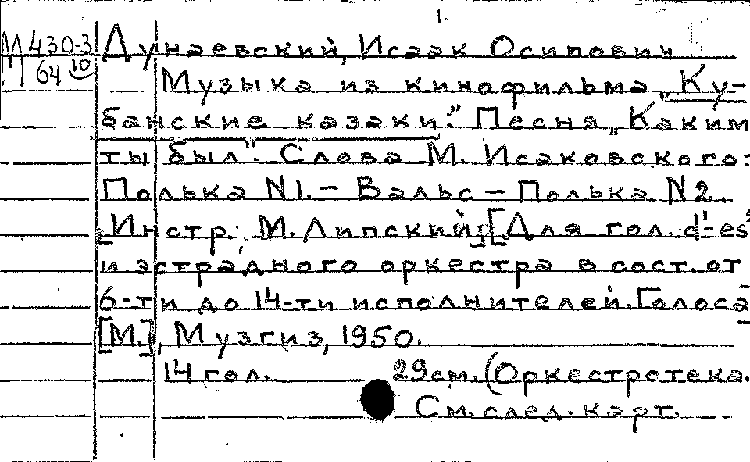 1.
М 430-3 Дунаевский, Исаак Осипович
64 10 Музыка из кинофильма „Ку-
банские казаки". Песня „Каким
ты был". Слова М. Исаковского.
Полька N1. – Вальс – Полька N2.
[Инстр. М. Липский]. [Для гол. d'-es²
и эстрадного оркестра в сост. от
6-ти до 14-ти исполнителей. Голоса]
[М.], Музгиз, 1950.
14 гол. 29 см. (Оркестротека.
См. след. карт.